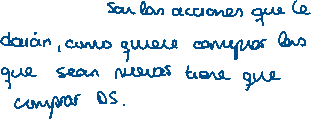 son las acciones que le
darán, como quiere comprar las
que sean nuevas tiene que
comprar DS.